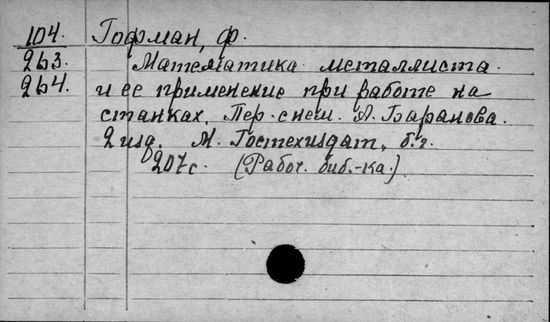 104. Гофман, Ф.
263. Математика металлиста
264. и ее применение при работе на
станках. Пер. с нем. А. Баранова.
2 изд. М. Гостехиздат, б.г.
207 с. (Рабоч. биб.-ка.)